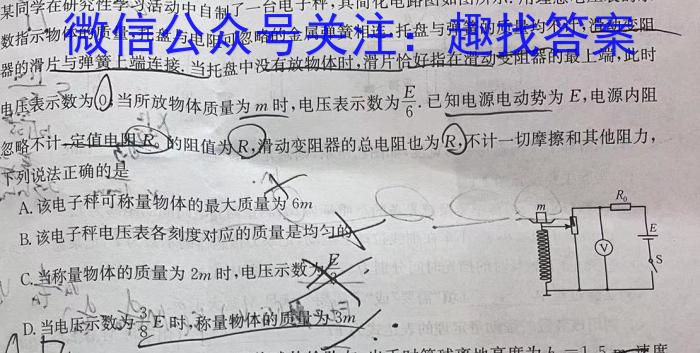 某同学在研究性学习活动中自制了一台电子秤，其简化电路图如图所示.
数指示物体的质量，托盘与电阻可忽略的金属弹簧相连，托盘与弹簧的质量均不计，滑动变阻
微信公众号关注：趣找答案
器的滑片与弹簧上端连接.当托盘中没有放物体时，滑片恰好指在滑动变阻器的最上端，此时
电压表示数为0.当所放物体质量为m时，电压表示数为E/6.已知电源电动势为E，电源内阻
忽略不计，定值电阻R₀的阻值为R，滑动变阻器的总电阻也为R，不计一切摩擦和其他阻力，
下列说法正确的是
A.该电子秤可称量物体的最大质量为6m
B.该电子秤电压表各刻度对应的质量是均匀的
C.当称量物体的质量为2m时，电压示数为
D.当电压示数为3/8E时，称量物体的质量为3m
m
R₀
V
E
S